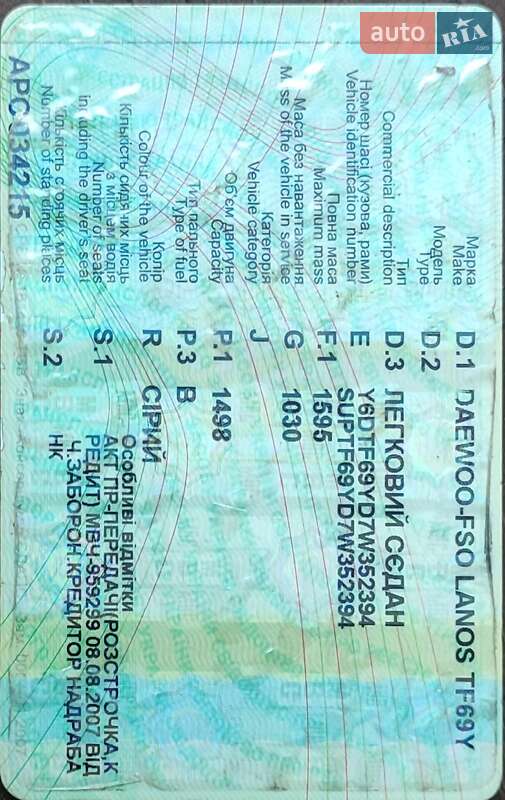 auto
RIA
.com
Марка
Make
D.1 DAEWOO-FSO LANOS TF69Y
Модель
Type
D.2
Тип
Commercial description
D.3 ЛЕГКОВИЙ СЄДАН
Номер шасі (кузова, рами)
Vehicle identification number
E Y6DTF69YD7W352394
SUPTF69YD7W352394
Повна маса
Maximum mass
F.1 1595
Маса без навантаження
Mass of the vehicle in service
G 1030
Категорія
Vehicle category
J
Об'єм двигуна
Capacity
P.1 1498
Тип пального
Type of fuel
P.3 B
Колір
Colour of the vehicle
R СІРИЙ
Кількість сидячих місць
з місцем водія
Number of seats
including the driver's seat
S.1
Кількість стоячих місць
Number of standing places
S.2
Особливі відмітки
АКТ ПР-ПЕРЕДАЧІ(РОЗСТРОЧКА,К
РЕДИТ) МВЧ-959299 08.08.2007 ВІД
Ч.ЗАБОРОН.КРЕДИТОР НАДРАБА
НК
АРС034215